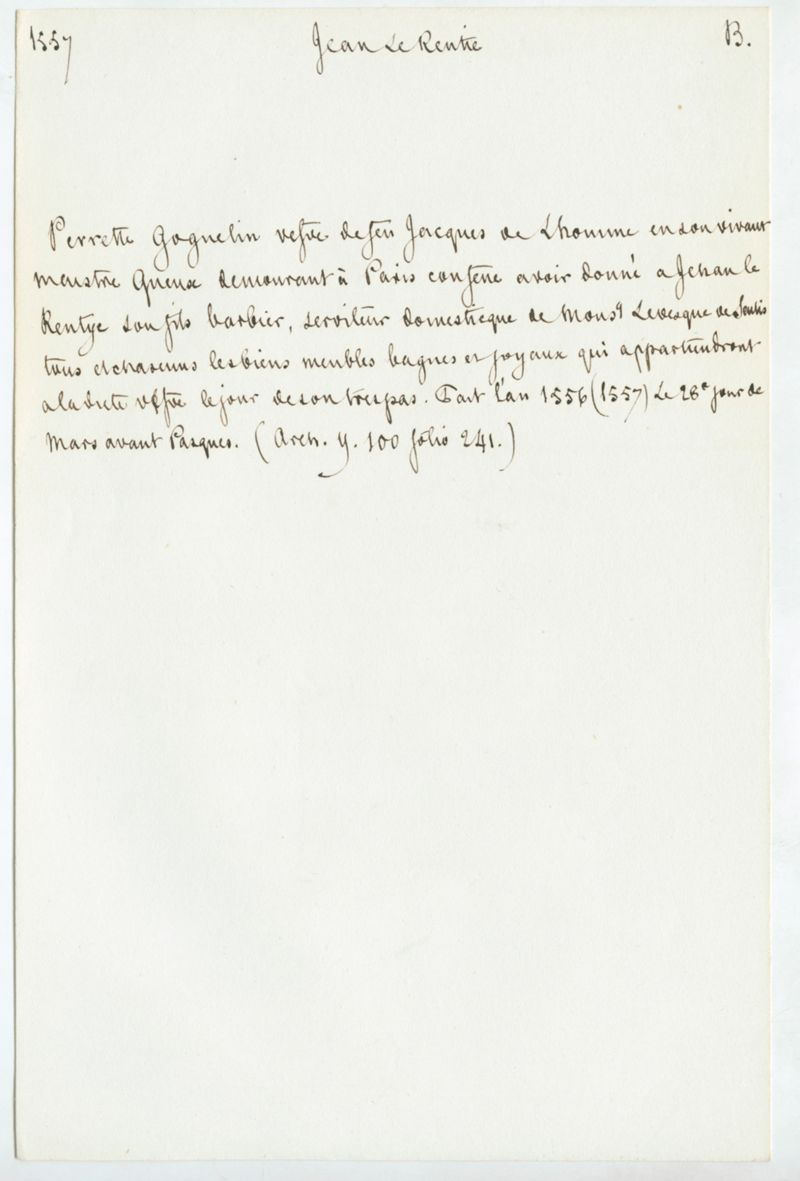 1557 Jean Le Rentie B.
Perrette Goguelin vefve de feu Jacques de Lhomme en son vivant
meustre Queux demourant à Paris confene avoir donné a Jehan le
Rentye son fils barbier, serviteur domestique de Mons^r Levesque de Senlis
tous et chacuns les biens meubles bagues et joyaux qui appartiendront
a ladicte vefve le jour de son trespas. Fait l'an 1556 (1557) Le 28^e jour de
Mars avant Pasques. (Arch. Y. 100 folio 241.)